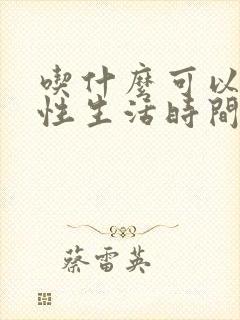 喫什麼可以
性生活時間
蔡雷英